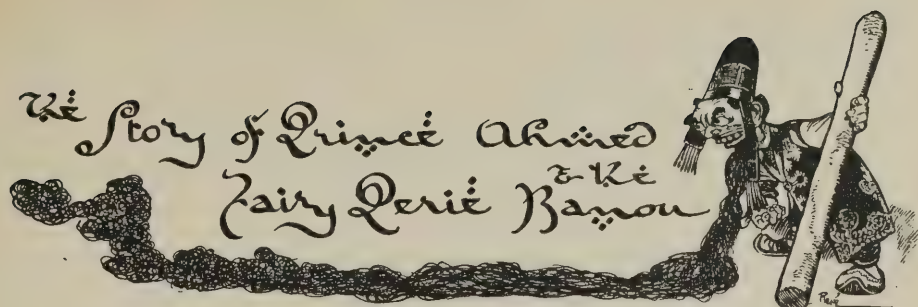 The Story of Prince Ahmed
& the Fairy Perie Banou